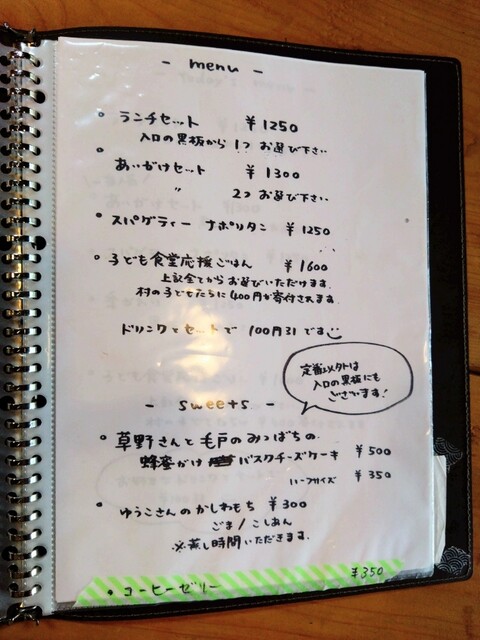 - menu -
・ランチセット ¥1250
入口の黒板から 1つ お選び下さい
・あいがけセット ¥1300
〃 2つ お選び下さい
・スパゲティー ナポリタン ¥1250
・子ども食堂応援ごはん ¥1600
上記全てからお選びいただけます。
村の子どもたちに400円が寄付されます。
ドリンクとセットで 100円引です
定番以外は
入口の黒板にも
ございます!
- sweets -
・草野さんと毛戸のみつばちの
蜂蜜がけ バスクチーズケーキ ¥500
ハーフサイズ ¥350
・ゆうこさんのかしわもち ¥300
ごま/こしあん
※蒸し時間いただきます。
・コーヒーゼリー ¥350